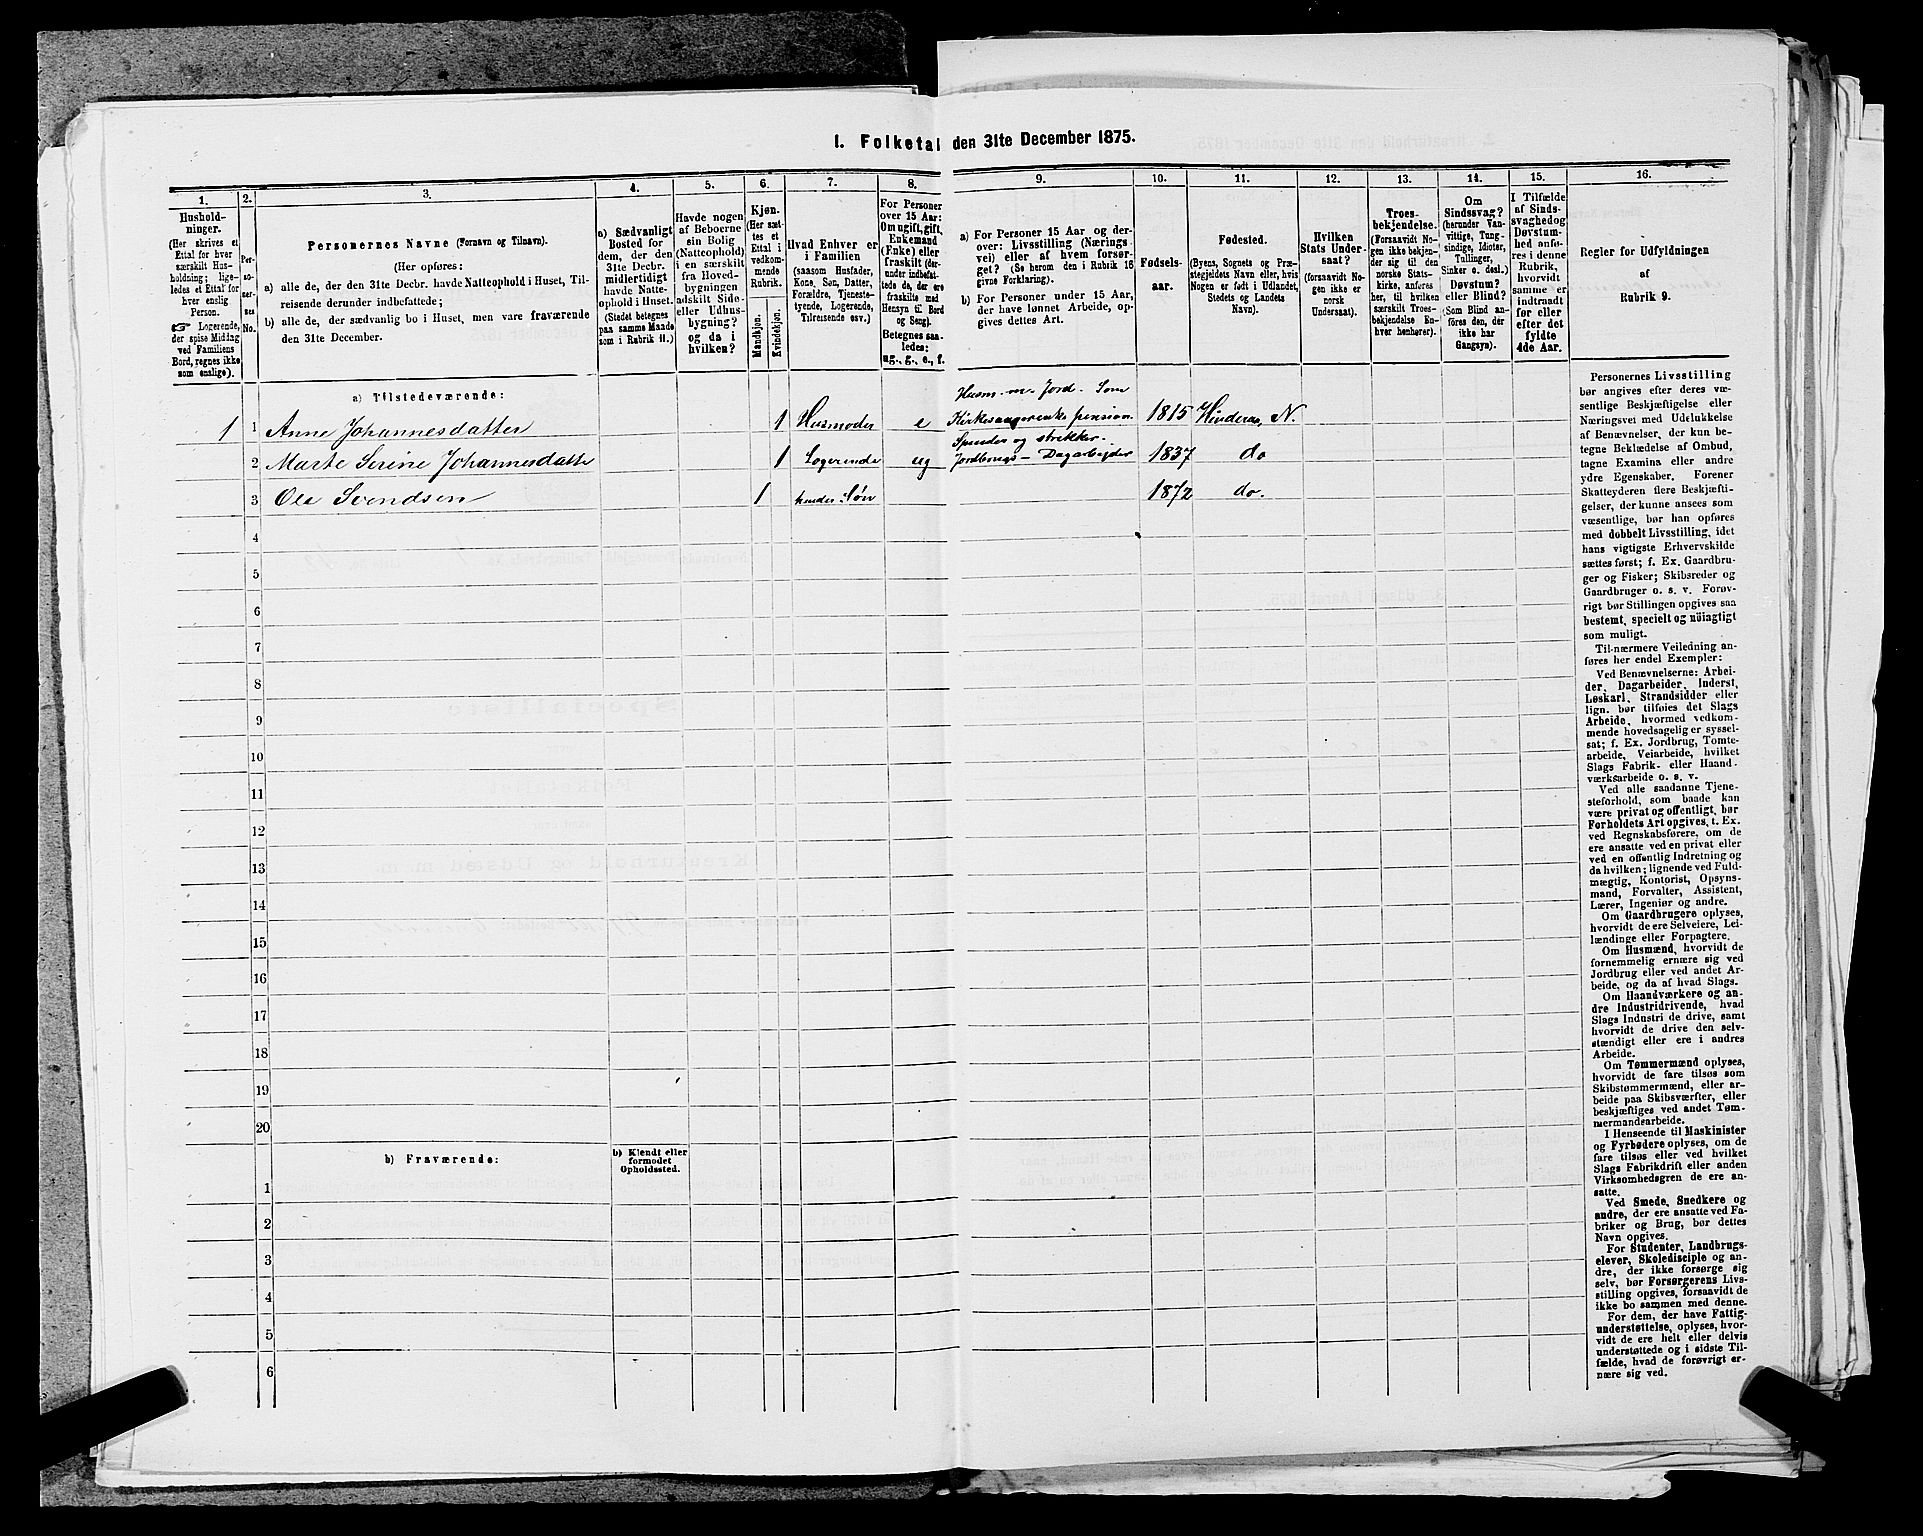 I. Folketal den 31te December 1875.
1.
2.
3.
4.
5.
6.
7.
8.
9.
10.
11.
12.
13.
14.
15.
16.
Hushold-
ninger.
(Her skrives et
Ettal for hver
særskilt Hus-
holdning; lige-
ledes et Ettal for
hver enslig
Person.
☞ Logerende,
der spise Middag
ved Familiens
Bord, regnes ikke
som enslige).
Per-
so-
ner-
nes
No.
Personernes Navne (Fornavn og Tilnavn).
(Her opføres:
a) alle de, der den 31te Decbr. havde Natteophold i Huset, Til-
reisende derunder indbefattede;
b) alle de, der sædvanlig bo i Huset, men vare fraværende
den 31te December.
a) Sædvanligt
Bosted for
dem, der den
31te Decbr.
midlertidigt
havde Natte-
ophold i Huset.
(Stedet betegnes
paa samme Maade
som i Rubrik 11.)
Havde nogen
af Beboerne
sin Bolig
(Natteophold)
i en særskilt
fra Hoved-
bygningen
adskilt Side-
eller Udhus-
bygning?
og da i
hvilken?
Kjøn.
(Her sæt-
tes et
Ettal i
vedkom-
mende
Rubrik.
Mandkjøn.
Kvindekjøn.
Hvad Enhver er
i Familien
(saasom Husfader,
Kone, Søn, Datter,
Forældre, Tjeneste-
tyende, Logerende,
Tilreisende osv.)
For Personer
over 15 Aar:
Om ugift, gift,
Enkemand
(Enke) eller
fraskilt (der-
under indbefat-
tede de, der ere
fraskilte med
Hensyn til Bord
og Seng).
Betegnes saa-
ledes:
ug., g., e., f.
a) For Personer 15 Aar og der-
over: Livsstilling (Nærings-
vei) eller af hvem forsør-
get? (Se herom den i Rubrik 16
givne Forklaring).
b) For Personer under 15 Aar,
der have lønnet Arbeide, op-
gives dettes Art.
Fødsels-
aar.
Fødested.
(Byens, Sognets og Præ-
stegjeldets Navn eller, hvis
Nogen er født i Udlandet,
Stedets og Landets
Navn).
Hvilken
Stats Under-
saat?
(forsaavidt No-
gen ikke er
norsk
Undersaat).
Troes-
bekjendelse.
(Forsaavidt No-
gen ikke bekjen-
der sig til den
norske Stats-
kirke, anføres
her, til hvilken
særskilt Troes-
bekjendelse En-
hver henhører).
Om
Sindssvag?
(herunder Van-
vittige, Tung-
sindige, Idioter,
Tullinger,
Sinker o. desl.)
Døvstum?
eller Blind?
(Som Blind an-
føres den, der
ikke har
Gangsyn).
I Tilfælde
af Sinds-
svaghed og
Døvstum-
hed anfø-
res i denne
Rubrik,
hvorvidt
samme er
indtraadt
før eller
efter det
fyldte
4de Aar.
Regler for Udfyldningen
af
Rubrik 9.
a) Tilstedeværende:
Husm. m. Jord. Som
1 1 Anne Johannesdatter 1 Husmoder e Kirkesangerenke pension. 1815 Hinderaa, N.
Spinder og strikker.
2 Marte Serine Johannesdatte 1 Logerende ug Jordbrugs-Dagarbejder 1837 do
3 Ole Svendsen 1 hendes Søn 1872 do.
4
5
6
7
8
9
10
11
12
13
14
15
16
17
18
19
20
b) Fraværende:
b) Kjendt eller
formodet
Opholdssted.
1
2
3
4
5
6
Personernes Livsstilling
bør angives efter deres væ-
sentlige Beskjæftigelse eller
Næringsvei med Udelukkelse
af Benævnelser, der kun be-
tegne Beklædelse af Ombud,
tagne Examina eller andre
ydre Egenskaber. Forener
Skatteyderen flere Beskjæfti-
gelser, der kunne ansees som
væsentlige, bør han opføres
med dobbelt Livsstilling, idet
hans vigtigste Erhvervskilde
sættes først; f. Ex. Gaardbru-
ger og Fisker; Skibsreder og
Gaardbruger o. s. v. Forøv-
rigt bør Stillingen opgives saa
bestemt, specielt og nøiagtigt
som muligt.
Til nærmere Veiledning an-
føres her endel Exempler:
Ved Benævnelserne: Arbei-
der, Dagarbeider, Inderst,
Løskarl, Strandsidder eller
lign. bør tilføies det Slags
Arbeide, hvormed vedkom-
mende hovedsagelig er syssel-
sat; f. Ex. Jordbrug, Tomte-
arbeide, Veiarbeide, hvilket
Slags Fabrik- eller Haand-
værksarbeide o. s. v.
Ved alle saadanne Tjene-
steforhold, som baade kan
være privat og offentligt, bør
Forholdets Art opgives, t. Ex.
ved Regnskabsførere, om de
ere ansatte ved en privat eller
ved en offentlig Indretning og
da hvilken; lignende ved Fuld-
mægtig, Kontorist, Opsyns-
mand, Forvalter, Assistent,
Lærer, Ingeniør og andre.
Om Gaardbrugere oplyses,
hvorvidt de ere Selveiere, Lei-
lændinge eller Forpagtere.
Om Husmænd, hvorvidt de
fornemmelig ernære sig ved
Jordbrug eller ved andet Ar-
beide, og da af hvad Slags.
Om Haandværkere og an-
dre Industridrivende, hvad
Slags Industri de drive, samt
hvorvidt de drive den selv-
stændigt eller ere i andres
Arbeide.
Om Tømmermænd oplyses,
hvorvidt de fare tilsøs som
Skibstømmermænd, eller ar-
beide paa Skibsværfter, eller
beskjæftiges ved andet Tøm-
mermandsarbeide.
I Henseende til Maskinister
og Fyrbødere oplyses, om de
fare tilsøs eller ved hvilket
Slags Fabrikdrift eller anden
Virksomhedsgren de ere an-
satte.
Ved Smede, Snedkere og
andre, der ere ansatte ved Fa-
briker og Brug, bør dettes
Navn opgives.
For Studenter, Landbrugs-
elever, Skoledisciple og an-
dre, der ikke forsørge sig
selv, bør Forsørgerens Livs-
stilling opgives, forsaavidt de
ikke bo sammen med denne.
For dem, der have Fattig-
understøttelse, oplyses, hvor-
vidt de ere helt eller delvis
understøttede og i sidste Til-
fælde, hvad de forøvrigt er-
nære sig ved.